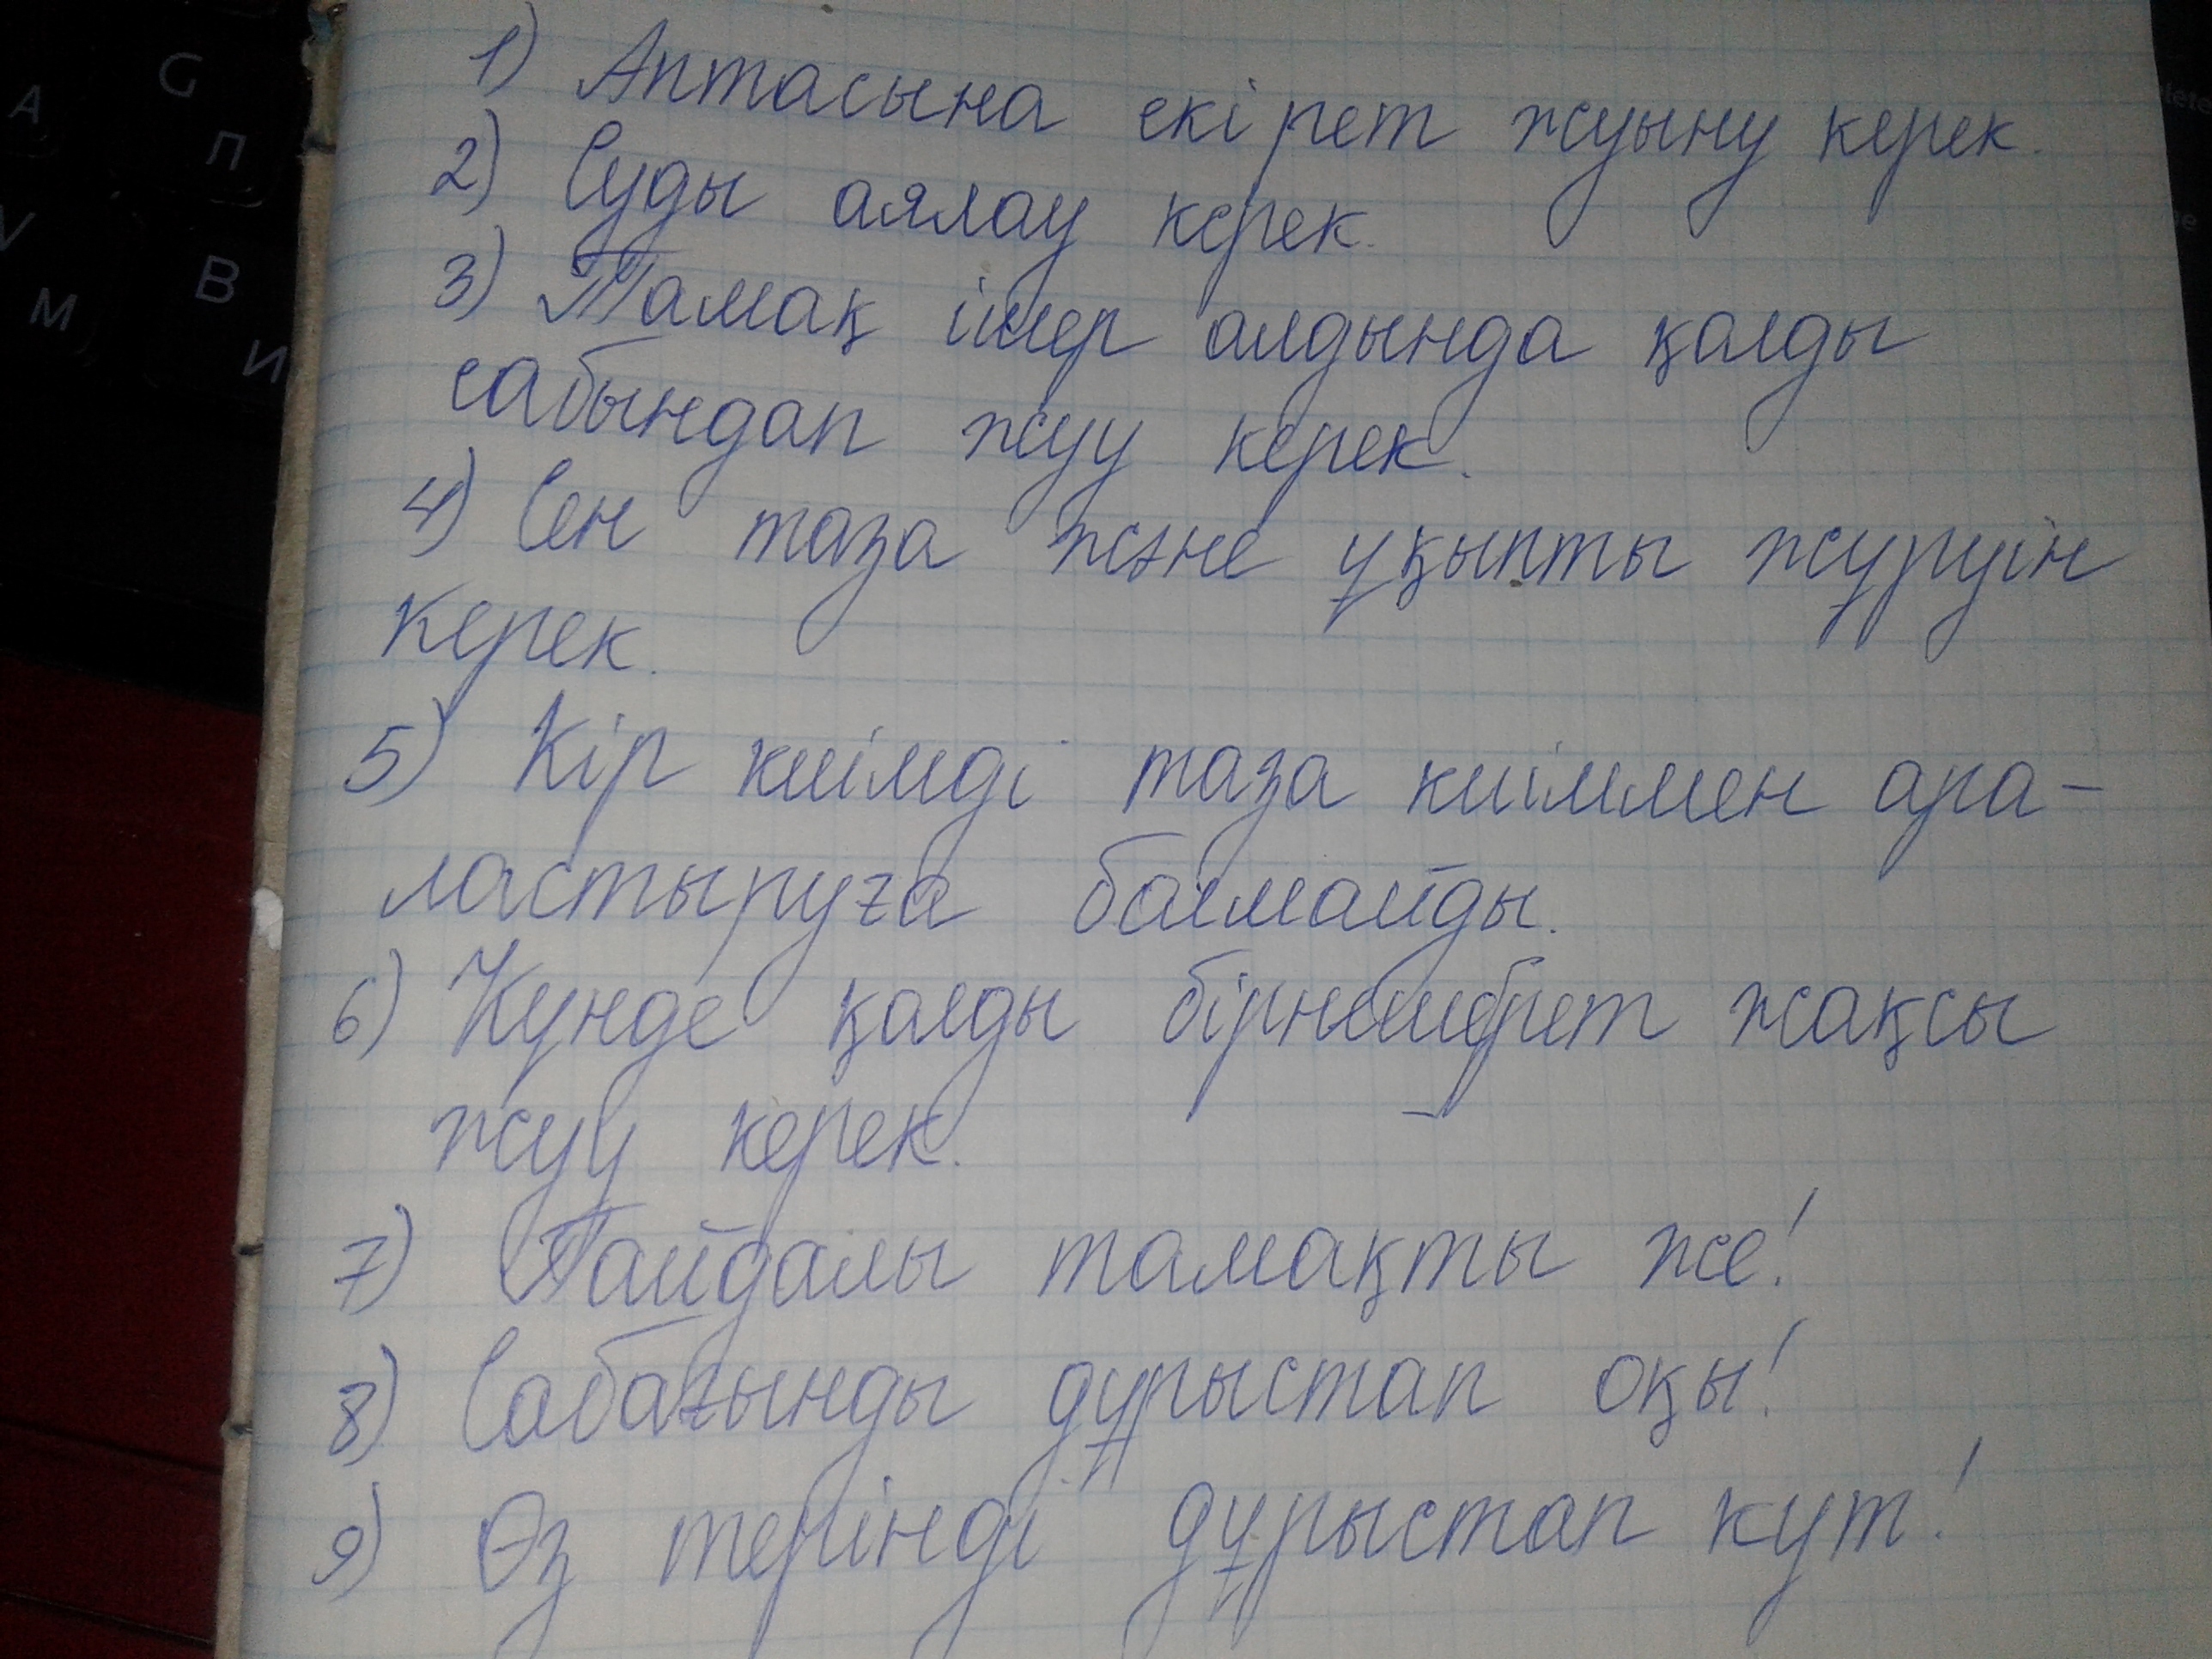 1) Аптасына екі рет жуыну керек.
2) Суды аялау керек.
3) Тамақ ішер алдында қолды
сабындап жуу керек.
4) Сен таза және ұқыпты жүруін
керек.
5) Кір киімді таза киіммен ара-
ластыруға болмайды.
6) Күнде қолды бірнеше рет жақсы
жуу керек.
7) Пайдалы тамақты же!
8) Сабағынды дұрыстап оқы!
9) Өз терінді дұрыстап күт!
G
A
П
V
M
B
И